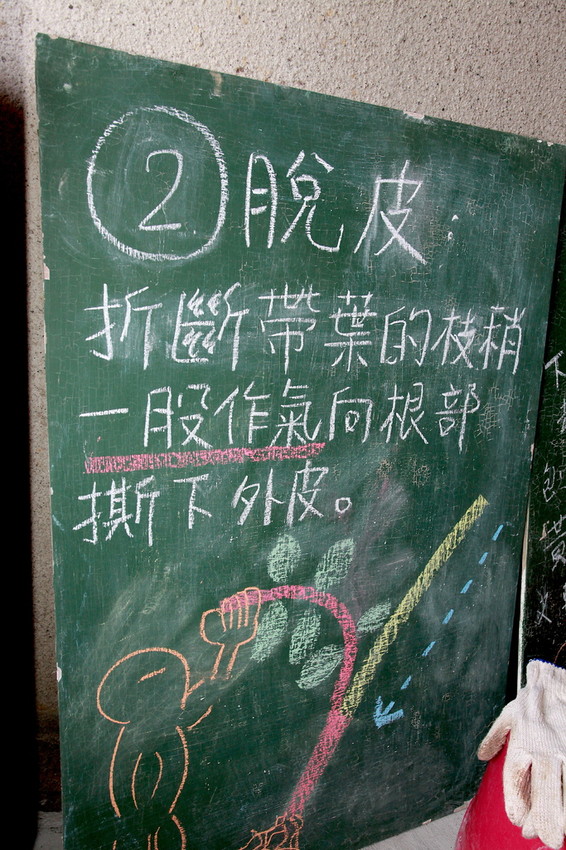 ② 脫皮：
折斷帶葉的枝稍
一股作氣向根部
撕下外皮。